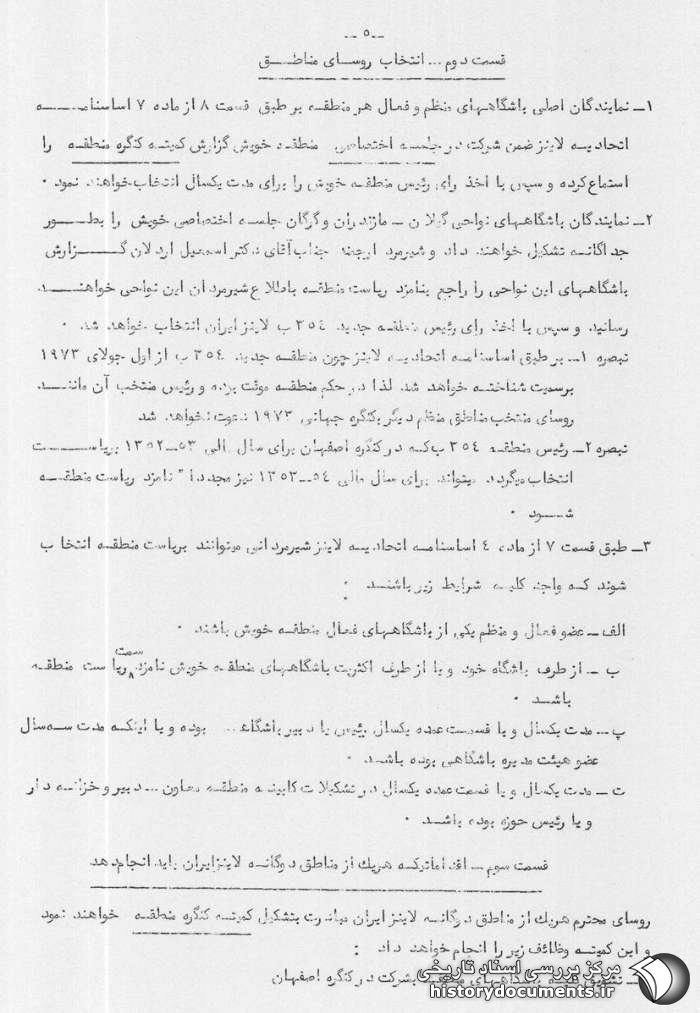 ـ ٥ ـ
قسمت دوم ... انتخاب روسای مناطق
۱ـ نمایندگان اصلی باشگاههای منظم و فعال هر منطقه بر طبق قسمت ۸ از ماده ۷ اساسنامه
اتحادیه لاینز ضمن شرکت در جلسه اختصاصی منطقه خویش گزارش کمیته کنگره منطقه را
استماع کرده و سپس با اخذ رای رئیس منطقه خویش را برای مدت یکسال انتخاب خواهند نمود .
۲ـ نمایندگان باشگاههای نواحی گیلان ـ مازندران و گرگان جلسه اختصاصی خویش را بطور
جداگانه تشکیل خواهند داد و شیرمرد ارجمند جناب آقای دکتر اسمعیل اردلان گزارش
باشگاههای این نواحی را راجع بنامزد ریاست منطقه باطلاع شیرمردان این نواحی خواهند
رسانید و سپس با اخذ رای رئیس منطقه جدید ۳٥٤ ب لاینز ایران انتخاب خواهد شد .
تبصره ۱ـ بر طبق اساسنامه اتحادیه لاینز چون منطقه جدید ۳٥٤ ب از اول جولای ۱۹۷۳
برسمیت شناخته خواهد شد لذا در حکم منطقه موقت بوده و رئیس منتخب آن مانند
روسای منتخب مناطق منظم دیگر بکنگره جهانی ۱۹۷۳ دعوت نخواهد شد
تبصره ۲ـ رئیس منطقه ۳٥٤ ب که در کنگره اصفهان برای سال مالی ٥۳ـ۱۳٥۲ بریاست
انتخاب میگردد میتواند برای سال مالی ٥٤ـ۱۳٥۳ نیز مجددا " نامزد ریاست منطقه
شود .
۳ـ طبق قسمت ۷ از ماده ٤ اساسنامه اتحادیه لاینز شیرمردانی میتوانند بریاست منطقه انتخاب
شوند که واجد کلیه شرایط زیر باشند :
الف ـ عضو فعال و منظم یکی از باشگاههای فعال منطقه خویش باشند .
ب ـ از طرف باشگاه خود و یا از طرف اکثریت باشگاههای منطقه خویش نامزد سمت ریاست منطقه
باشد .
پ ـ مدت یکسال و یا قسمت عمده یکسال رئیس یا دبیر باشگاه... بوده و یا اینکه مدت سه سال
عضو هیئت مدیره باشگاهی بوده باشد .
ت ـ مدت یکسال و یا قسمت عمده یکسال در تشکیلات کابینه منطقه معاون ... دبیر و خزانه دار
و یا رئیس حوزه بوده باشد .
قسمت سوم ـ اقداماتیکه هریك از مناطق دوگانه لاینز ایران باید انجام دهد
روسای محترم هریك از مناطق دوگانه لاینز ایران مبادرت بتشکیل کمیته کنگره منطقه خواهند نمود
و این کمیته وظائف زیر را انجام خواهد داد :
تشویق باشگاههای منطقه بشرکت در کنگره اصفهان
مرکز بررسی اسناد تاریخی
historydocuments.ir